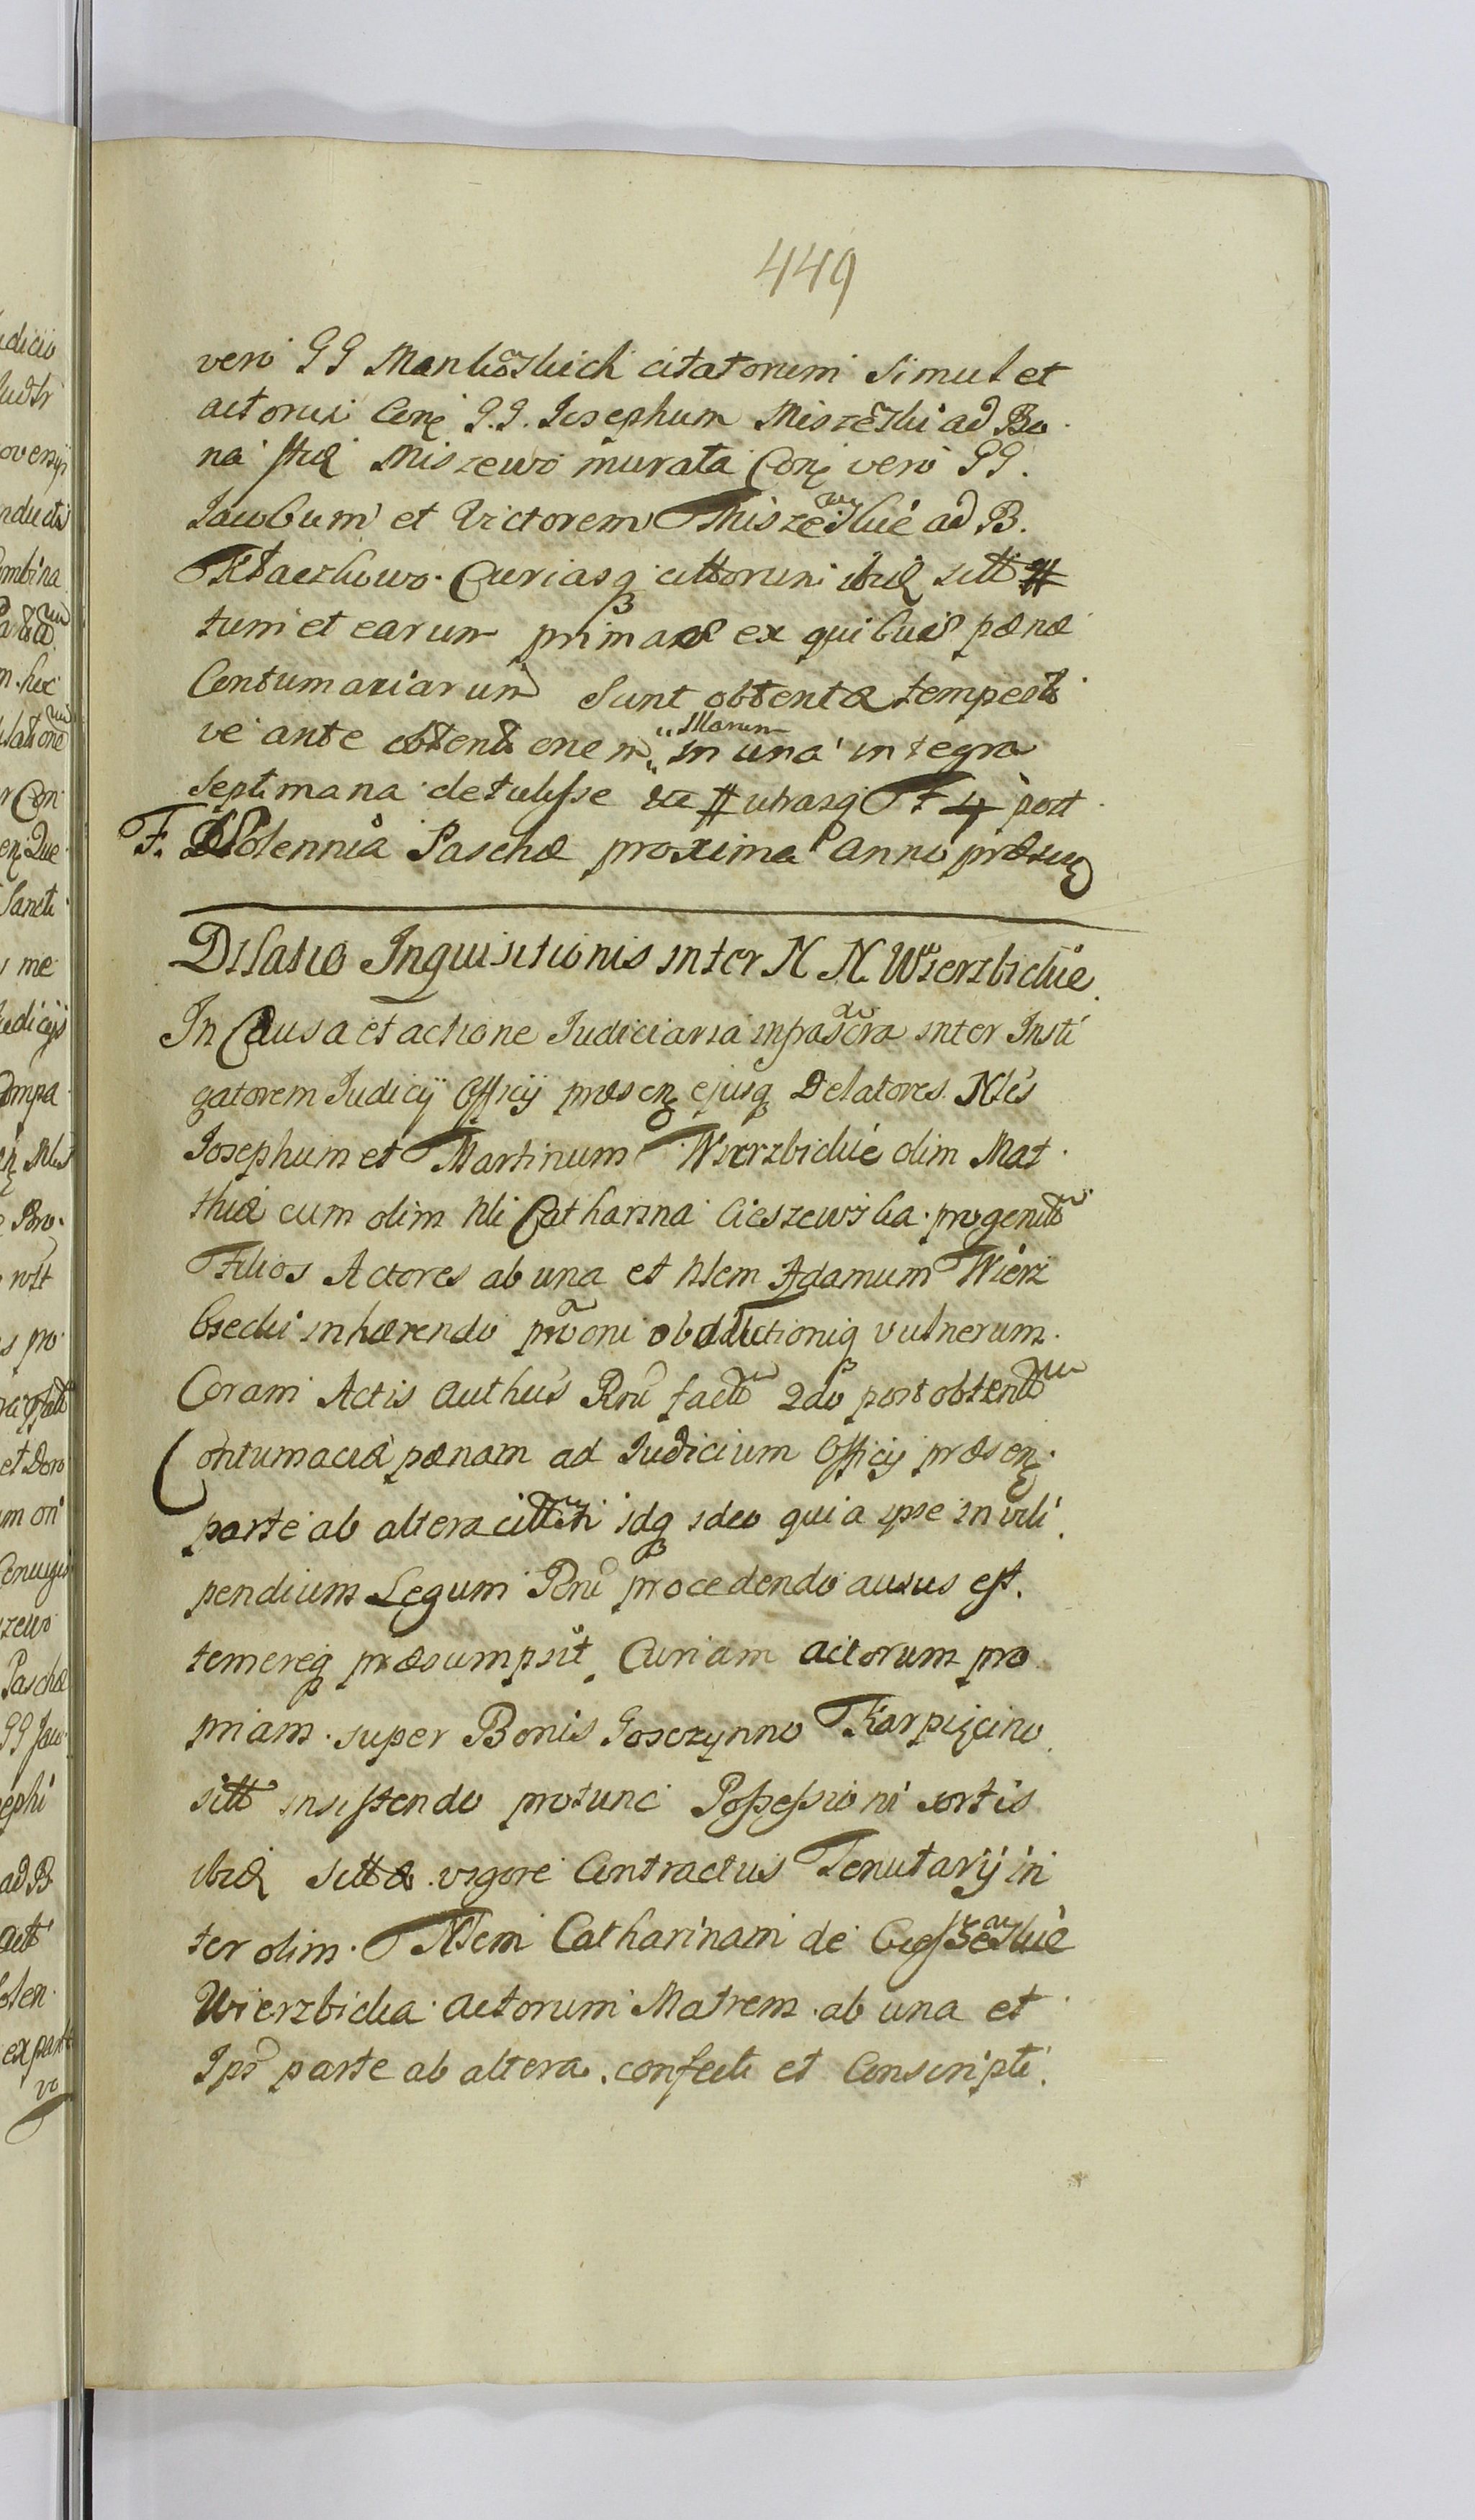 449
vero GG Mankowskich citatorum simul et
actorum Conę G.G. Josephum Miszewski ad Bo
na ſtuę Miszewo murata Conę vero GG.
Jacobum et Victorem Miszewskie ad B.
Kłaczkowo. Curiasq cittorum ibidę sitt
tum et earum primaę ex quibus pænæ
Contumaciarum sunt obtentæ tempesti
ve ante obtentionem "illarum in una integra
septimana detulisse utrasq F 4 post
F. Solennia Paschæ proxima anni præsen
Dilatio Inquisitionis inter N N Wierzbickie
In Causa et actione Judiciaria infrascra inter Insti
gatorem Judicij Officij præsenę ejusq Delatores Nles
Josephum et Martinum Wierzbickie olim Mat
thiæ cum olim Nli Catharina Cieszewska progenitt
Filios Actores ab una et Nlem Adamum Wierz
bicki inhærendo prooni obductioniq vulnerum
Coram Actis Authus Rni factt 2do post obtentt
Contumaciæ pænam ad Judicium Officij præsenę
parte ab altera citt idq ideo quia ipse in vili
pendium Legum Rni procedendo ausus est.
temereq præsumpsit, Curiam actorum pro
priam super Bonis Gosczynno Karpięcino
sitt insistendo protunc Possessioni sortis
ibidę sittæ vigore Contractus Tenutarij in
ter olim Nlem Catharinam de Cieszewskie
Wierzbicka actorum Matrem ab una et
Ips parte ab altera confecti et Conscripti